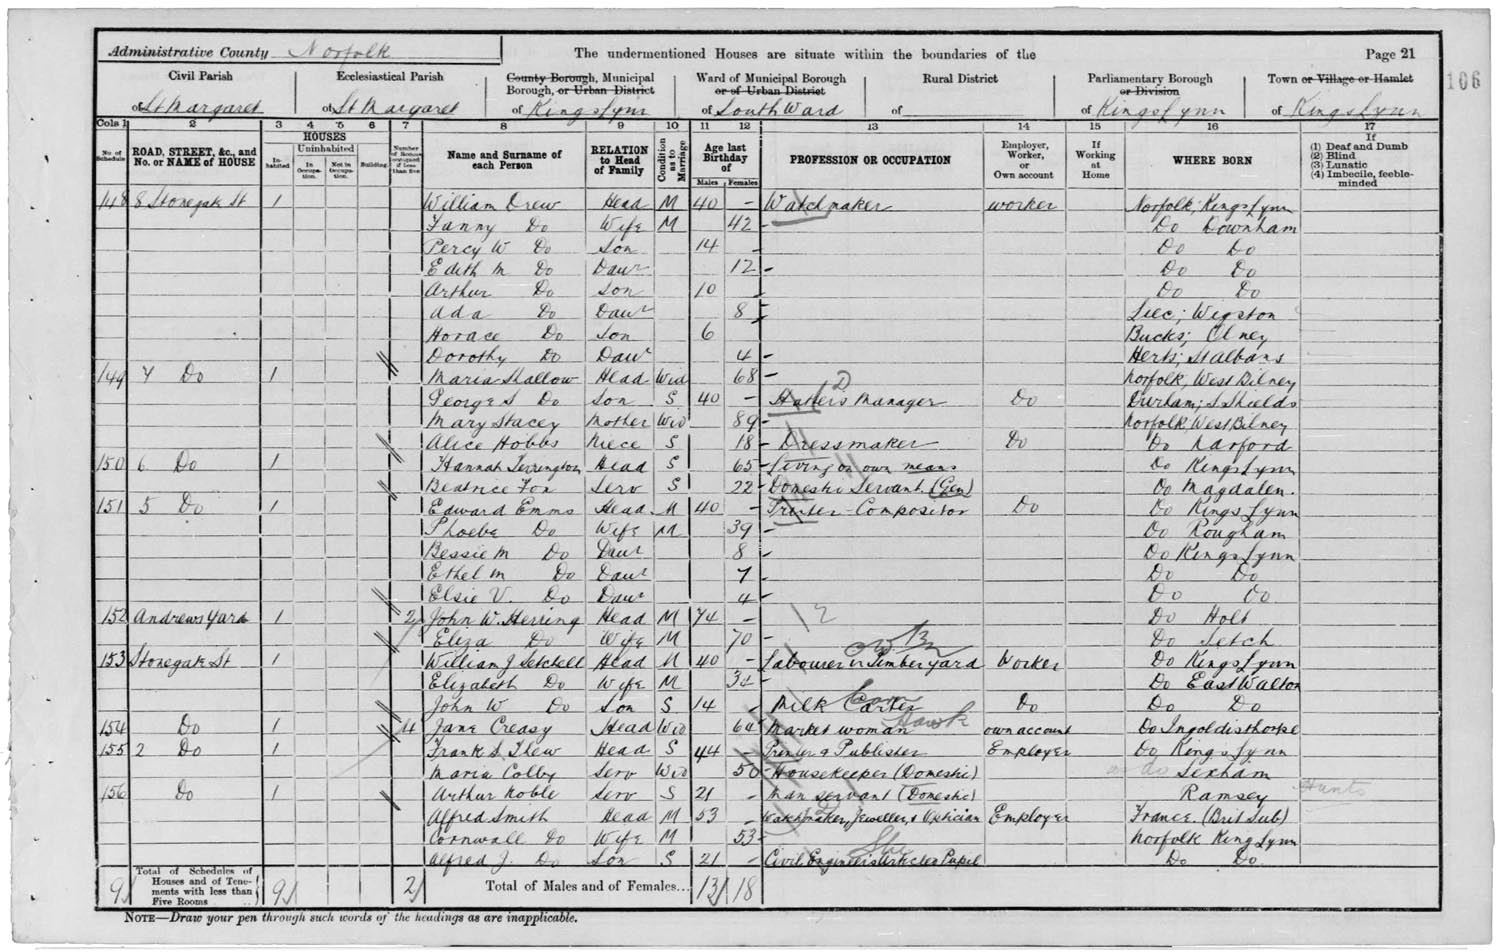 Administrative County Norfolk The undermentioned Houses are situate within the boundaries of the Page 21
106
Civil Parish Ecclesiastical Parish County Borough, Municipal Borough, or Urban District Ward of Municipal Borough or of Urban District Rural District Parliamentary Borough or Division Town or Village or Hamlet
of St Margaret of St Margaret of Kings Lynn of South Ward of of Kings Lynn of Kings Lynn
Cols 1 2 3 4 5 6 7 8 9 10 11 12 13 14 15 16 17
No. of Schedule ROAD, STREET, &c., and No. or NAME of HOUSE HOUSES Inhabited Uninhabited In Occupation. Not in Occupation. Building. Number of Rooms occupied if less than five Name and Surname of each Person RELATION to Head of Family Condition as to Marriage Age last Birthday of Males Females PROFESSION OR OCCUPATION Employer, Worker, or Own account If Working at Home WHERE BORN If (1) Deaf and Dumb (2) Blind (3) Lunatic (4) Imbecile, feeble-minded
148 8 Stonegate St 1 William Drew Head M 40 - Watchmaker worker Norfolk; Kings Lynn
Fanny Do Wife M 42 - Do Downham
Percy W Do Son 14 - Do Do
Edith M Do Daur 12 - Do Do
Arthur Do Son 10 Do Do
Ada Do Daur 8 - Leic; Wigston
Horace Do Son 6 Bucks; Olney
Dorothy Do Daur 4 - Herts; St Albans
149 7 Do 1 Maria Shallow Head Wid 68 - Norfolk, West Bilney
George S Do Son S 40 - Hatter's Manager Do Durham; S Shields
Mary Stacey Mother Wid 89 - Norfolk, West Bilney
Alice Hobbs Niece S 18 - Dressmaker Do Do Narford
150 6 Do 1 Hannah Terrington Head S 65 - Living on own means Do Kings Lynn
Beatrice Fon Serv S 22 - Domestic Servant. (Gen) Do Magdalen.
151 5 Do 1 Edward Emms Head M 40 - Printer Compositor Do Do Kings Lynn
Phoebe Do Wife M 39 - Do Rougham
Bessie M Do Daur 8 - Do Kings Lynn
Ethel M Do Daur 7 - Do Do
Elsie V. Do Daur 4 - Do Do
152 Andrews Yard 1 2 John W. Herring Head M 74 - Do Holt
Eliza Do Wife M 70 - Do Setch
153 Stonegate St 1 William J Setchell Head M 40 - Labourer in Timber yard Worker Do Kings Lynn
Elizabeth Do Wife M 34 - Do East Walton
John W Do Son S 14 Milk Carrier Do Do Do
154 Do 1 4 Jane Creasy Head Wid 64 Market woman Hawk own account Do Ingoldisthorpe
155 2 Do 1 Frank S. Thew Head S 44 - Printer & Publisher Employer Do Kings Lynn
Maria Colby Serv Wid 50 - Housekeeper (Domestic) do Lexham
156 Do 1 Arthur Noble Serv S 21 - Man servant (Domestic) Ramsey Hunts
Alfred Smith Head M 53 - Watchmaker, Jeweller, & Optician Employer France. (Brit Sub)
Cornwall Do Wife M 53 - Norfolk Kings Lynn
Alfred J. Do Son S 21 - Civil Engineers Articled Pupil Do Do
9 Total of Schedules of Houses and of Tenements with less than Five Rooms 9 2 Total of Males and of Females... 13 18
NOTE—Draw your pen through such words of the headings as are inapplicable.